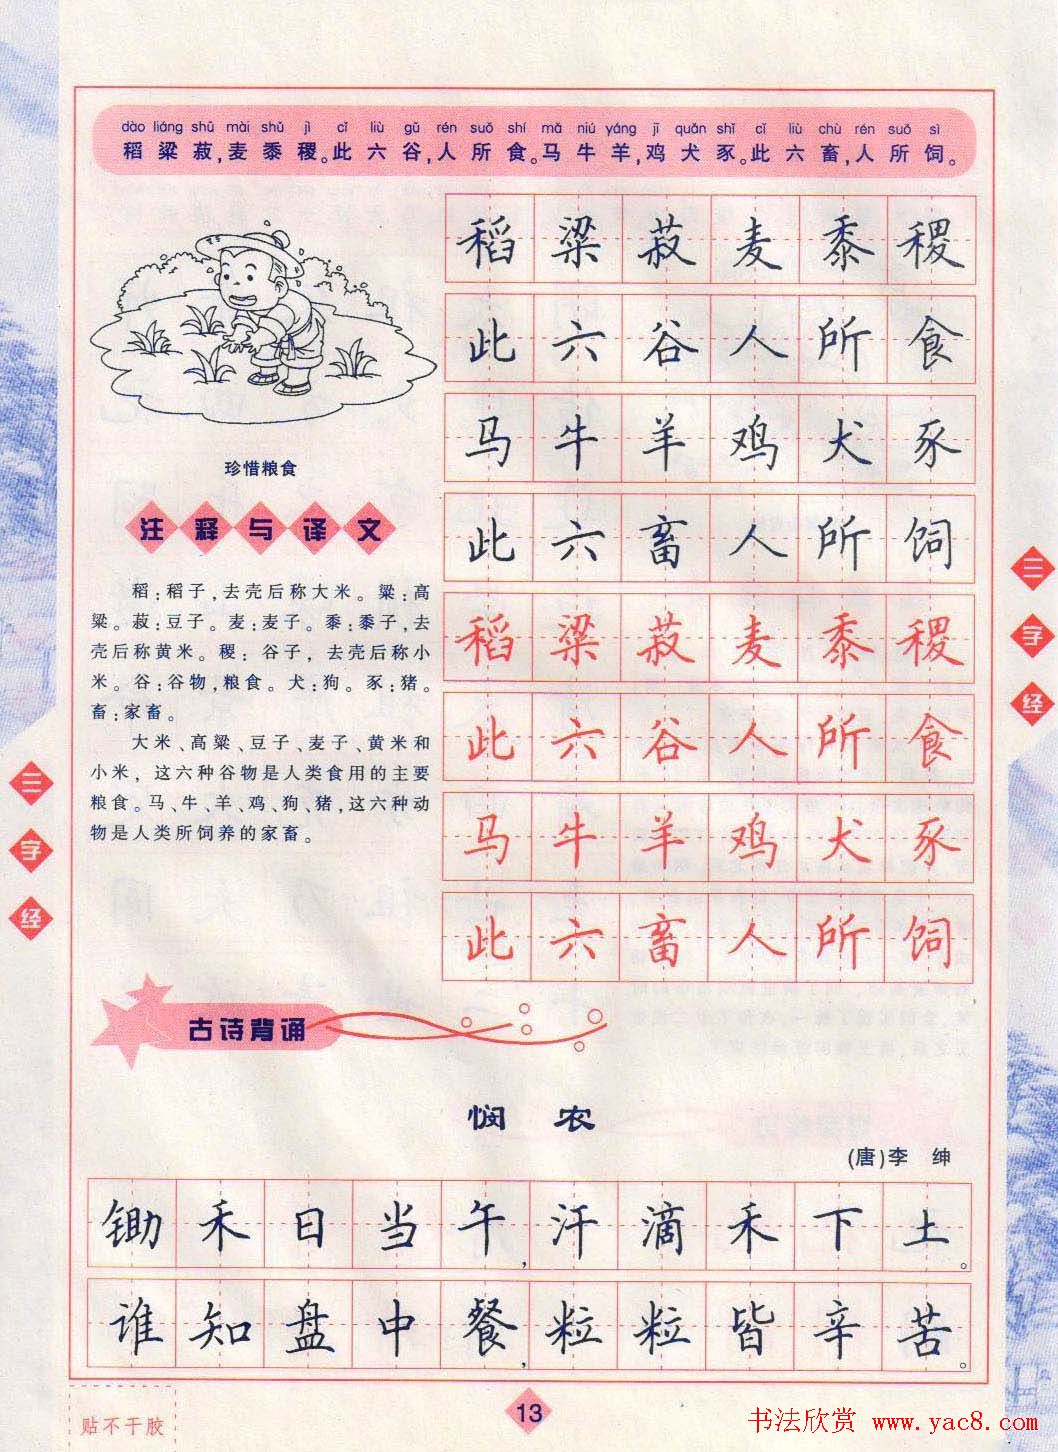 dào liáng shū mài shǔ jì cǐ liù gǔ rén suǒ shí mǎ niú yáng jī quǎn shǐ cǐ liù chù rén suǒ sì
稻粱菽,麦黍稷。此六谷,人所食。马牛羊,鸡犬豕。此六畜,人所饲。
稻粱菽麦黍稷
此六谷人所食
马牛羊鸡犬豕
此六畜人所饲
稻粱菽麦黍稷
此六谷人所食
马牛羊鸡犬豕
此六畜人所饲
珍惜粮食
注释与译文
稻:稻子,去壳后称大米。粱:高
粱。菽:豆子。麦:麦子。黍:黍子,去
壳后称黄米。稷:谷子,去壳后称小
米。谷:谷物,粮食。犬:狗。豕:猪。
畜:家畜。
大米、高粱、豆子、麦子、黄米和
小米,这六种谷物是人类食用的主要
粮食。马、牛、羊、鸡、狗、猪,这六种动
物是人类所饲养的家畜。
三字经
三字经
古诗背诵
悯农
(唐)李 绅
锄禾日当午,汗滴禾下土。
谁知盘中餐,粒粒皆辛苦。
贴不干胶
13
书法欣赏 www.yac8.com